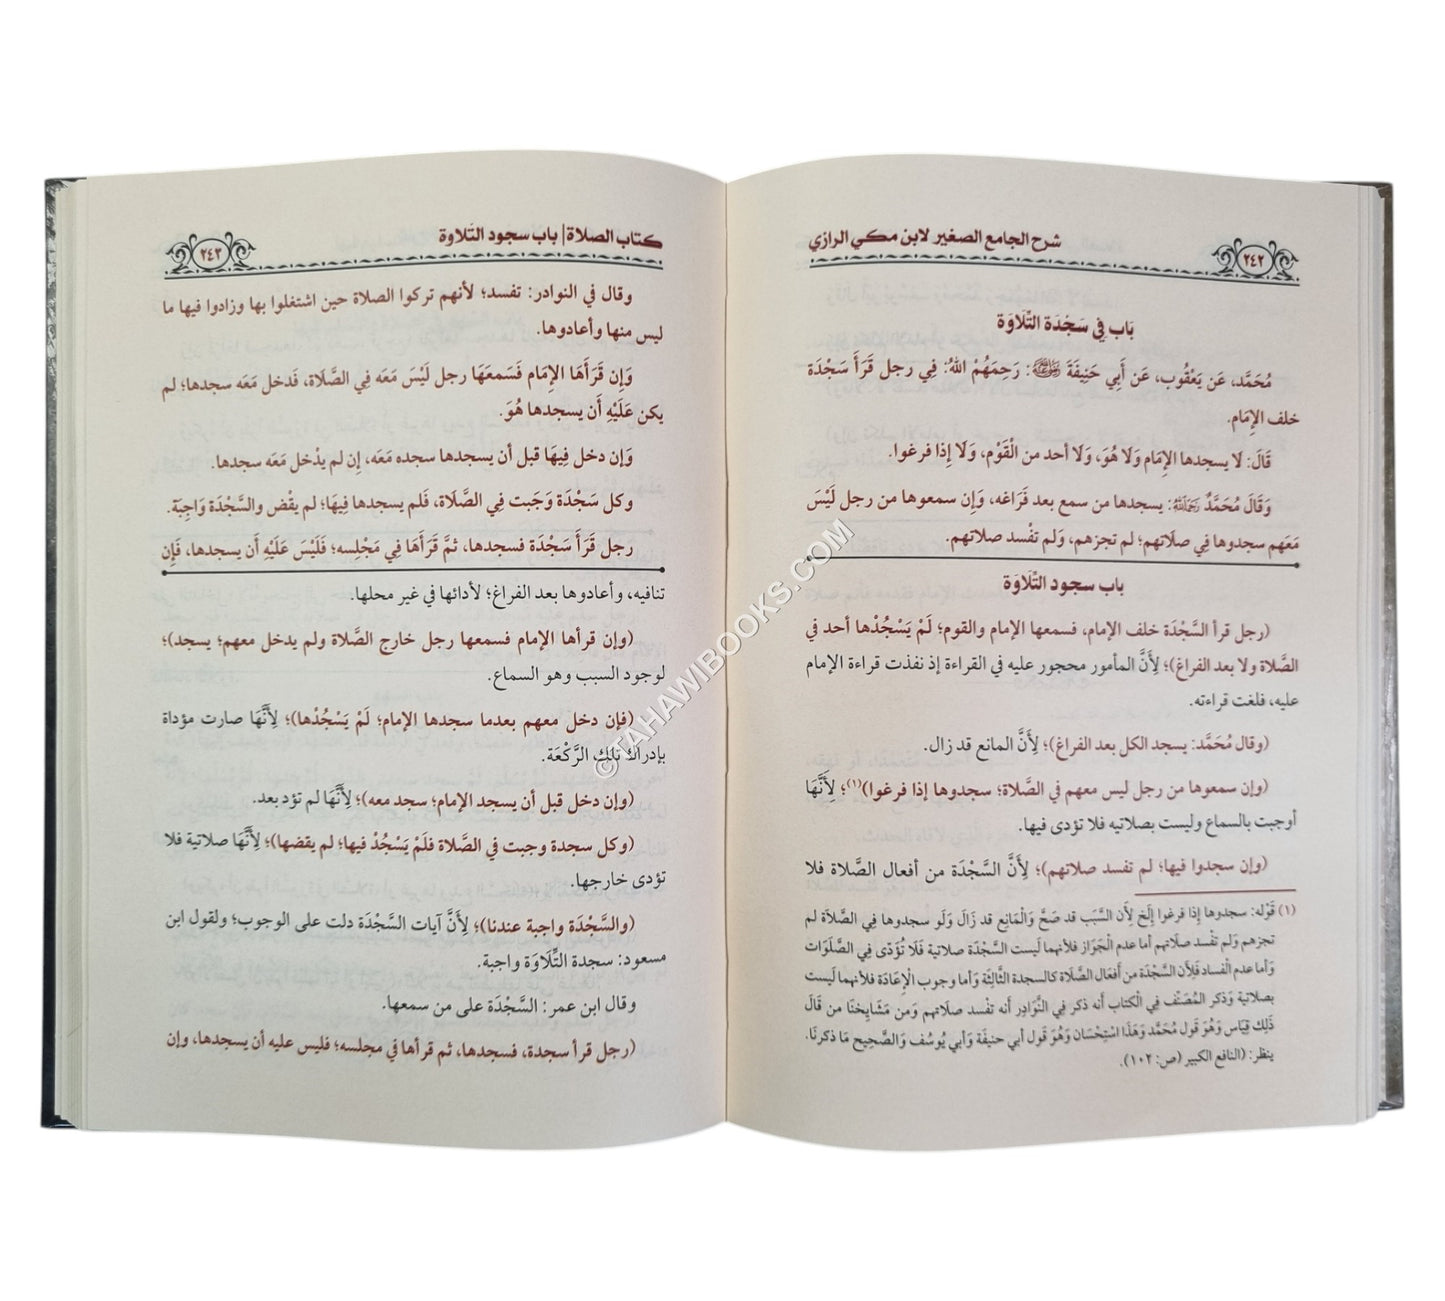 شرح الجامع الصغير لابن مكي الرازي
٢٤٢
بَاب فِي سَجْدَة التِّلَاوَة
مُحَمَّد، عَن يَعْقُوب، عَن أَبِي حَنِيفَةَ: رَحِمَهُمْ اللهُ: فِي رجل قَرَأَ سَجْدَة
خلف الإِمَام.
قَالَ: لا يسجدها الإِمَام وَلَا هُوَ، وَلَا أحد من الْقَوْم، وَلَا إِذا فرغوا.
وَقَالَ مُحَمَّدٌ رَحِمَهُ اللهُ: يسجدها من سمع بعد فَرَاغه، وَإِن سمعوها من رجل لَيْسَ
مَعَهم سجدوها فِي صلَاتهم؛ لم تجزهم، وَلم تفْسد صلاتهم.
باب سجود التِّلَاوَة
(رجل قرأ السَّجْدَة خلف الإمام، فسمعها الإمام والقوم؛ لَمْ يَسْجُدْها أحد في
الصَّلاة ولا بعد الفراغ)؛ لِأَنَّ المأمور محجور عليه في القراءة إذ نفذت قراءة الإمام
عليه، فلغت قراءته.
(وقال مُحَمَّد: يسجد الكل بعد الفراغ)؛ لِأَنَّ المانع قد زال.
(وإن سمعوها من رجل ليس معهم في الصَّلاة؛ سجدوها إذا فرغوا)(١)؛ لِأَنَّهَا
أوجبت بالسماع وليست بصلاتيه فلا تؤدى فيها.
(وإن سجدوا فيها؛ لم تفسد صلاتهم)؛ لِأَنَّ السَّجْدَة من أفعال الصَّلاة فلا
(١) قَوْله: سجدوها إِذا فرغوا إِلَخ لِأَن السَّبَب قد صَحَّ وَالْمَانِع قد زَالَ وَلَو سجدوها فِي الصَّلَاة لم
تجزهم وَلم تفْسد صلَاتهم أما عدم الْجَوَاز فلأنهما لَيست السَّجْدَة صلاتية فَلَا تُؤَدّى فِي الصَّلَوَات
وَأما عدم الْفساد فَلِأَن السَّجْدَة من أفعَال الصَّلَاة كالسجدة الثَّالِثَة وَأما وجوب الْإِعَادَة فلأنهما لَيست
بصلاتية وَذكر المُصَنّف فِي الْكتاب أَنه ذكر فِي النَّوَادِر أَنه تفْسد صلَاتهم وَمن مَشَايِخنَا من قَالَ
ذَلِك قِيَاس وَهُوَ قَول مُحَمَّد وَهَذَا اسْتِحْسَان وَهُوَ قَول أبي حنيفَة وَأبي يُوسُف وَالصَّحِيح مَا ذكرنَا.
ينظر: (النافع الكبير (ص: ١٠٢).
كتاب الصلاة | باب سجود التَلاوة
٢٤٣
وقال في النوادر: تفسد؛ لأنهم تركوا الصلاة حين اشتغلوا بها وزادوا فيها ما
ليس منها وأعادوها.
وَإِن قَرَأَهَا الإِمَام فَسَمعَهَا رجل لَيْسَ مَعَه فِي الصَّلَاة، فَدخل مَعَه سجدها؛ لم
يكن عَلَيْهِ أَن يسجدها هُوَ.
وَإِن دخل فِيهَا قبل أَن يسجدها سجده مَعَه، إِن لم يدْخل مَعَه سجدها.
وكل سَجْدَة وَجَبت فِي الصَّلَاة، فَلم يسجدها فِيهَا؛ لم يقْض والسَّجْدَة وَاجِبَة.
رجل قَرَأَ سَجْدَة فسجدها، ثمَّ قَرَأَهَا فِي مَجْلِسه؛ فَلَيْسَ عَلَيْهِ أَن يسجدها، فَإِن
تنافيه، وأعادوها بعد الفراغ؛ لأدائها في غير محلها.
(وإن قرأها الإمام فسمعها رجل خارج الصَّلاة ولم يدخل معهم؛ يسجد)؛
لوجود السبب وهو السماع.
(فإن دخل معهم بعدما سجدها الإمام؛ لَمْ يَسْجُدْها)؛ لِأَنَّهَا صارت مؤداة
بإدراك تلك الرَّكْعَة.
(وإن دخل قبل أن يسجد الإمام؛ سجد معه)؛ لِأَنَّهَا لم تؤد بعد.
(وكل سجدة وجبت في الصَّلاة فلَمْ يَسْجُدْ فيها؛ لم يقضها)؛ لِأَنَّهَا صلاتية فلا
تؤدى خارجها.
(والسَّجْدَة واجبة عندنا)؛ لِأَنَّ آيات السَّجْدَة دلت على الوجوب؛ ولقول ابن
مسعود: سجدة التِّلَاوَة واجبة.
وقال ابن عمر: السَّجْدَة على من سمعها.
(رجل قرأ سجدة، فسجدها، ثم قرأها في مجلسه؛ فليس عليه أن يسجدها، وإن
© TAHAWIBOOKS.COM